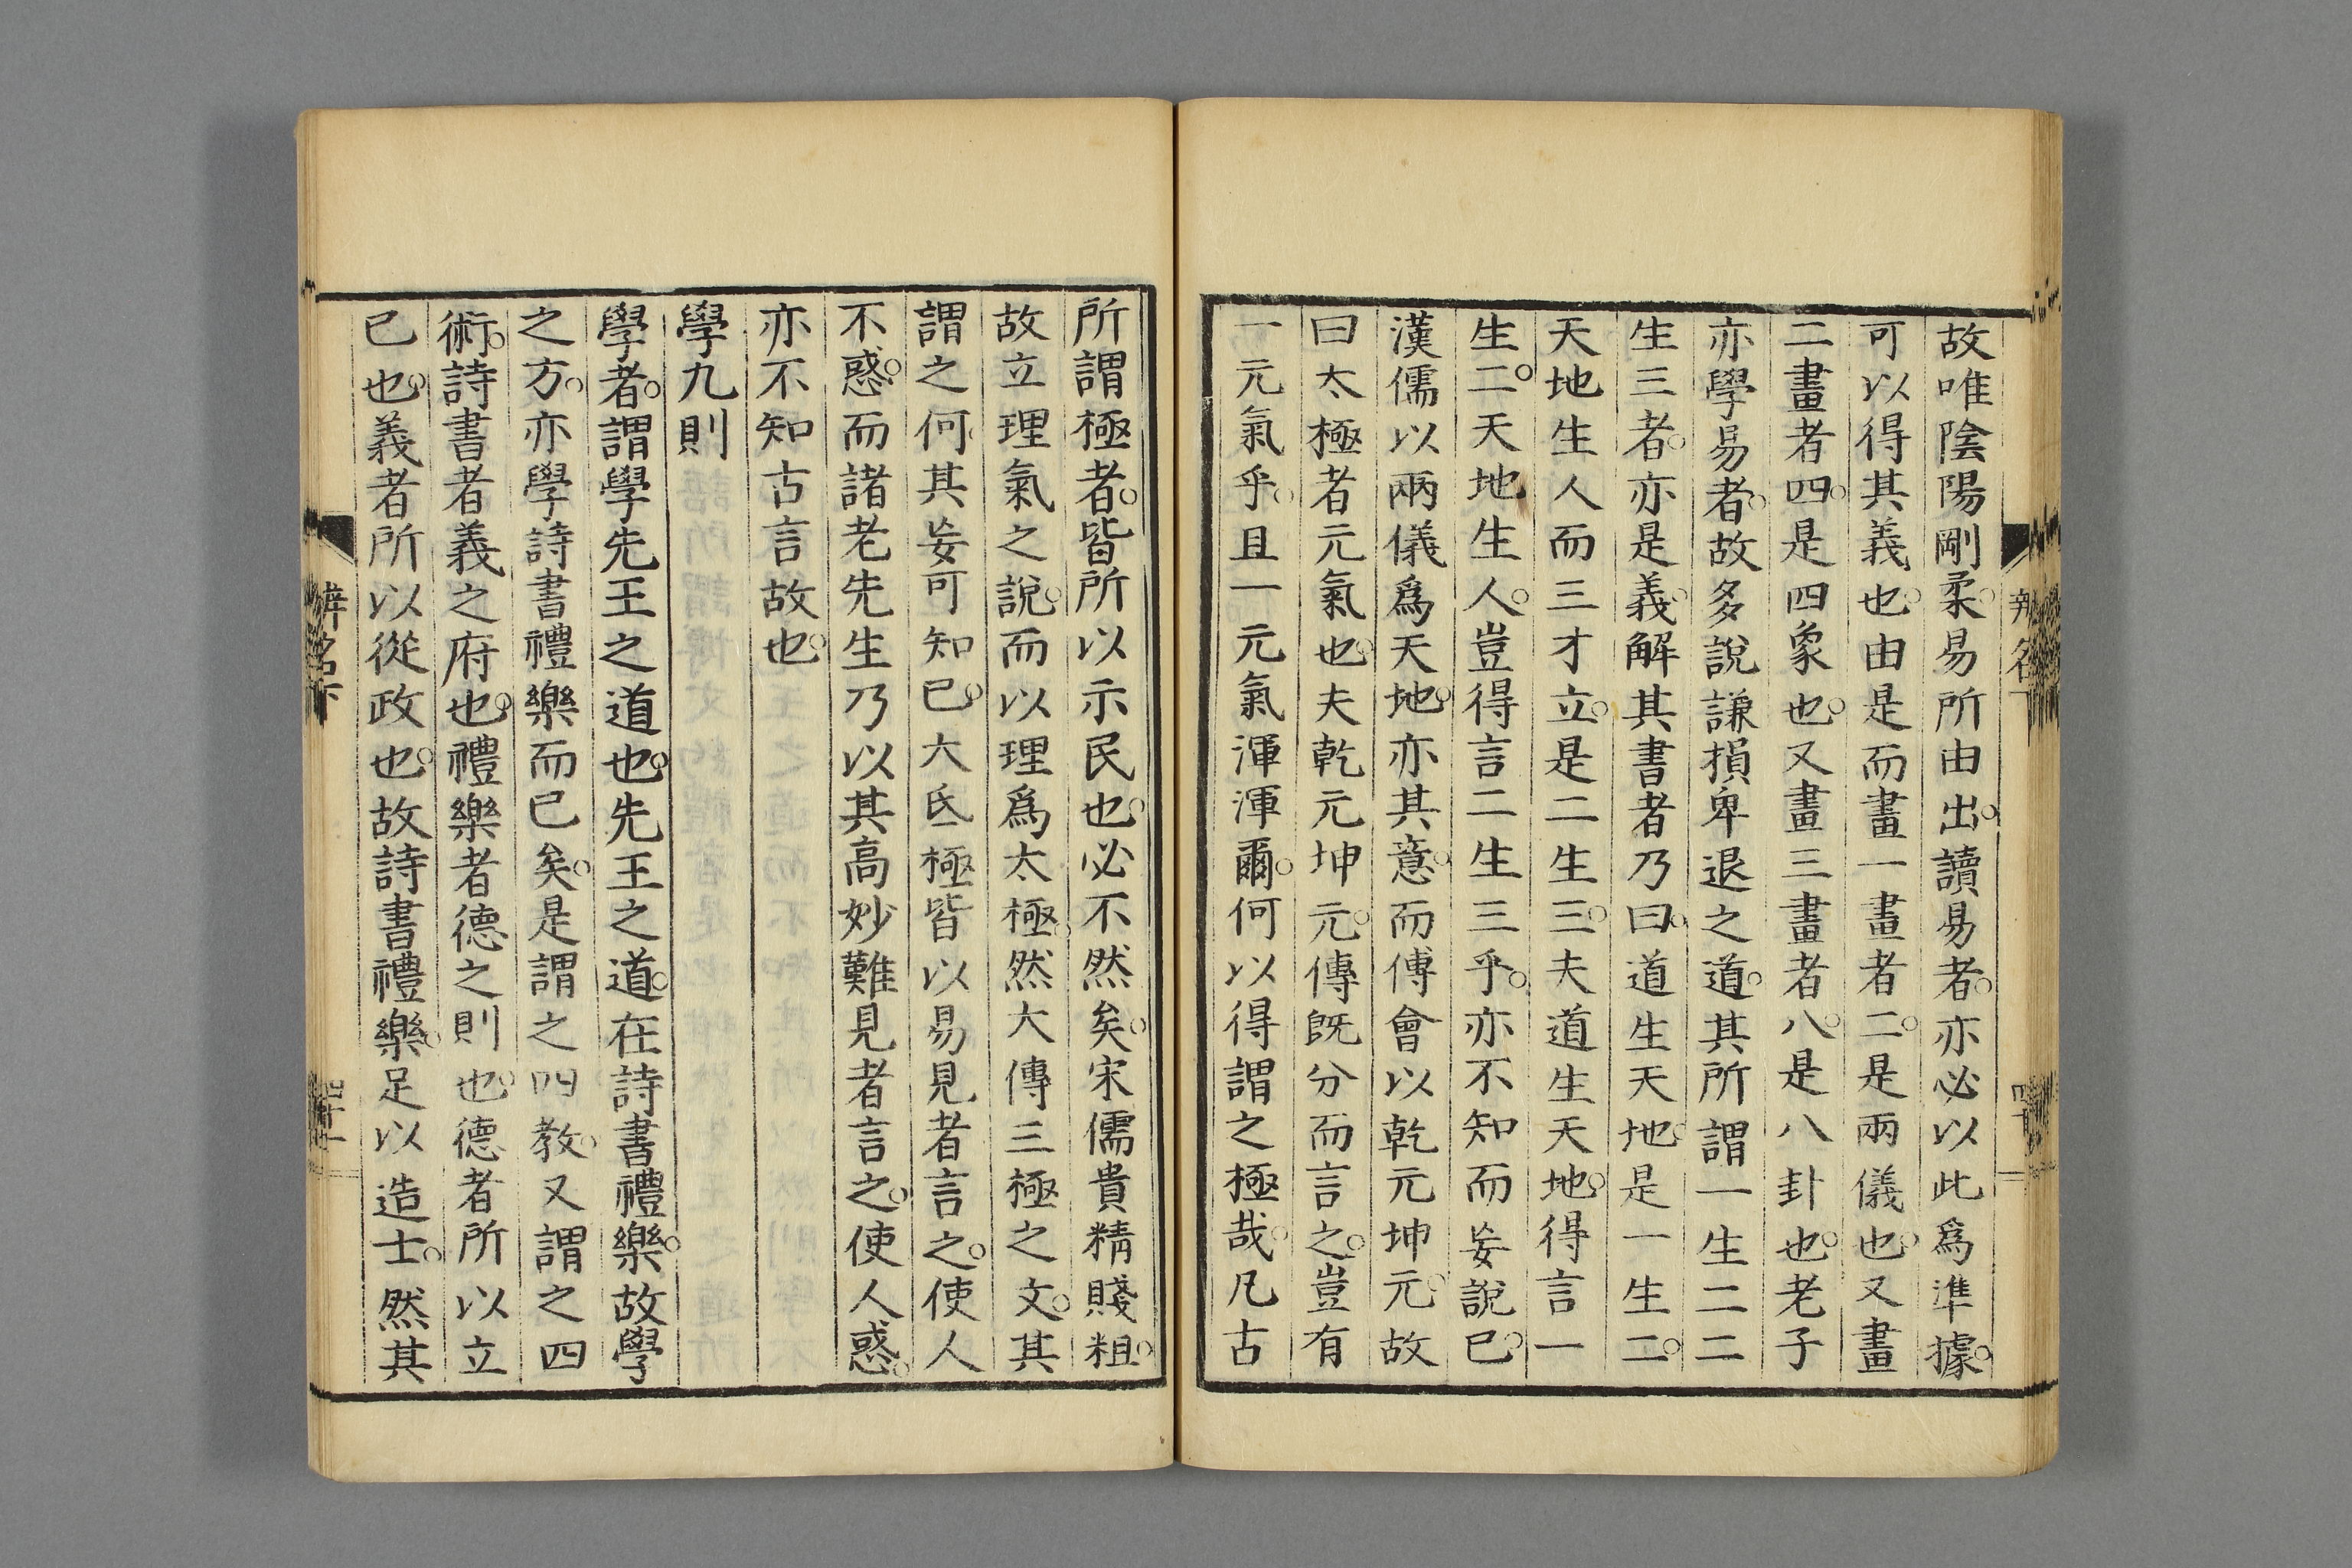 故唯陰陽剛柔。易所由出。讀易者。亦必以此爲準據。
可以得其義也。由是而畫一畫者二。是兩儀也。又畫
二畫者四。是四象也。又畫三畫者八。是八卦也。老子
亦學易者。故多說謙損卑退之道。其所謂一生二二
生三者。亦是義。解其書者乃曰。道生天地。是一生二。
天地生人而三才立。是二生三。夫道生天地。得言一
生二。天地生人。豈得言二生三乎。亦不知而妄說已。
漢儒以兩儀爲天地。亦其意。而傅會以乾元坤元。故
曰太極者元氣也。夫乾元坤元。傳旣分而言之。豈有
一元氣乎。且一元氣渾渾爾。何以得謂之極哉。凡古
所謂極者。皆所以示民也。必不然矣。宋儒貴精賤粗。
故立理氣之說。而以理爲太極。然大傳三極之文。其
謂之何。其妄可知已。大氐極皆以易見者言之。使人
不惑。而諸老先生乃以其高妙難見者言之。使人惑。
亦不知古言故也。
學九則
學者。謂學先王之道也。先王之道。在詩書禮樂。故學
之方。亦學詩書禮樂而已矣。是謂之四教。又謂之四
術。詩書者義之府也。禮樂者德之則也。德者所以立
已也。義者所以從政也。故詩書禮樂。足以造士。然其
辨名下